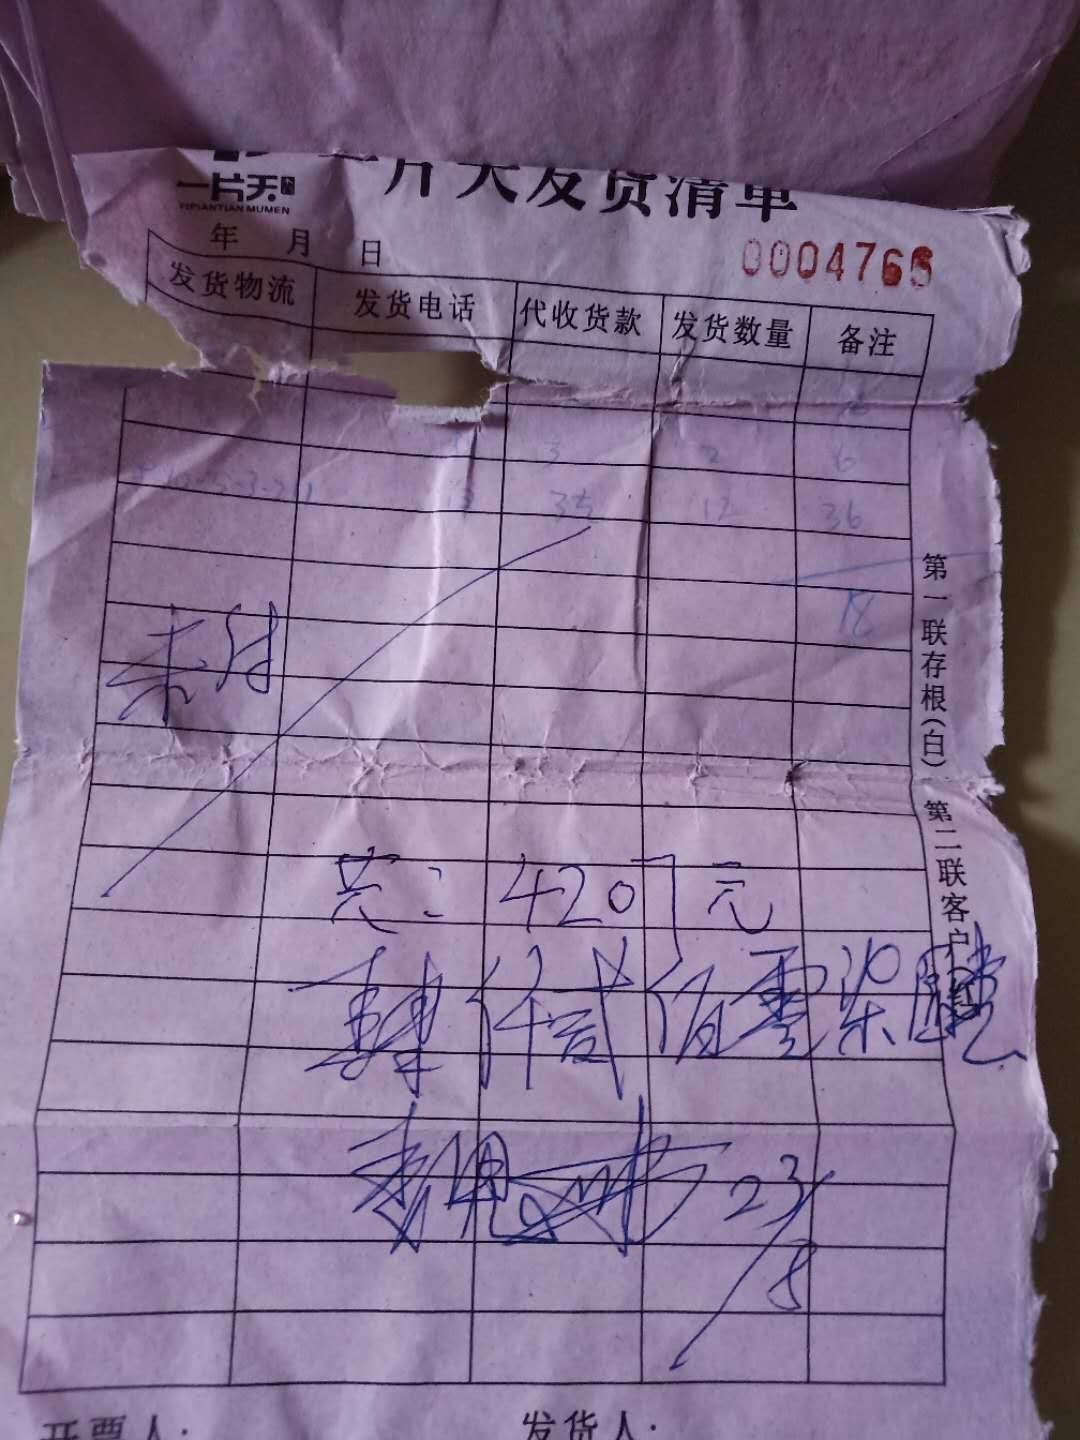 一片天发货清单
一片天
YIPIANTIAN MUMEN
年 月 日
0004766
发货物流 发货电话 代收货款 发货数量 备注
3 2 6
13 35 12 36
18
未付
共：4207元
肆仟贰佰零柒圆
23/8
第一联存根（白） 第二联客户（红）
开票人： 发货人：